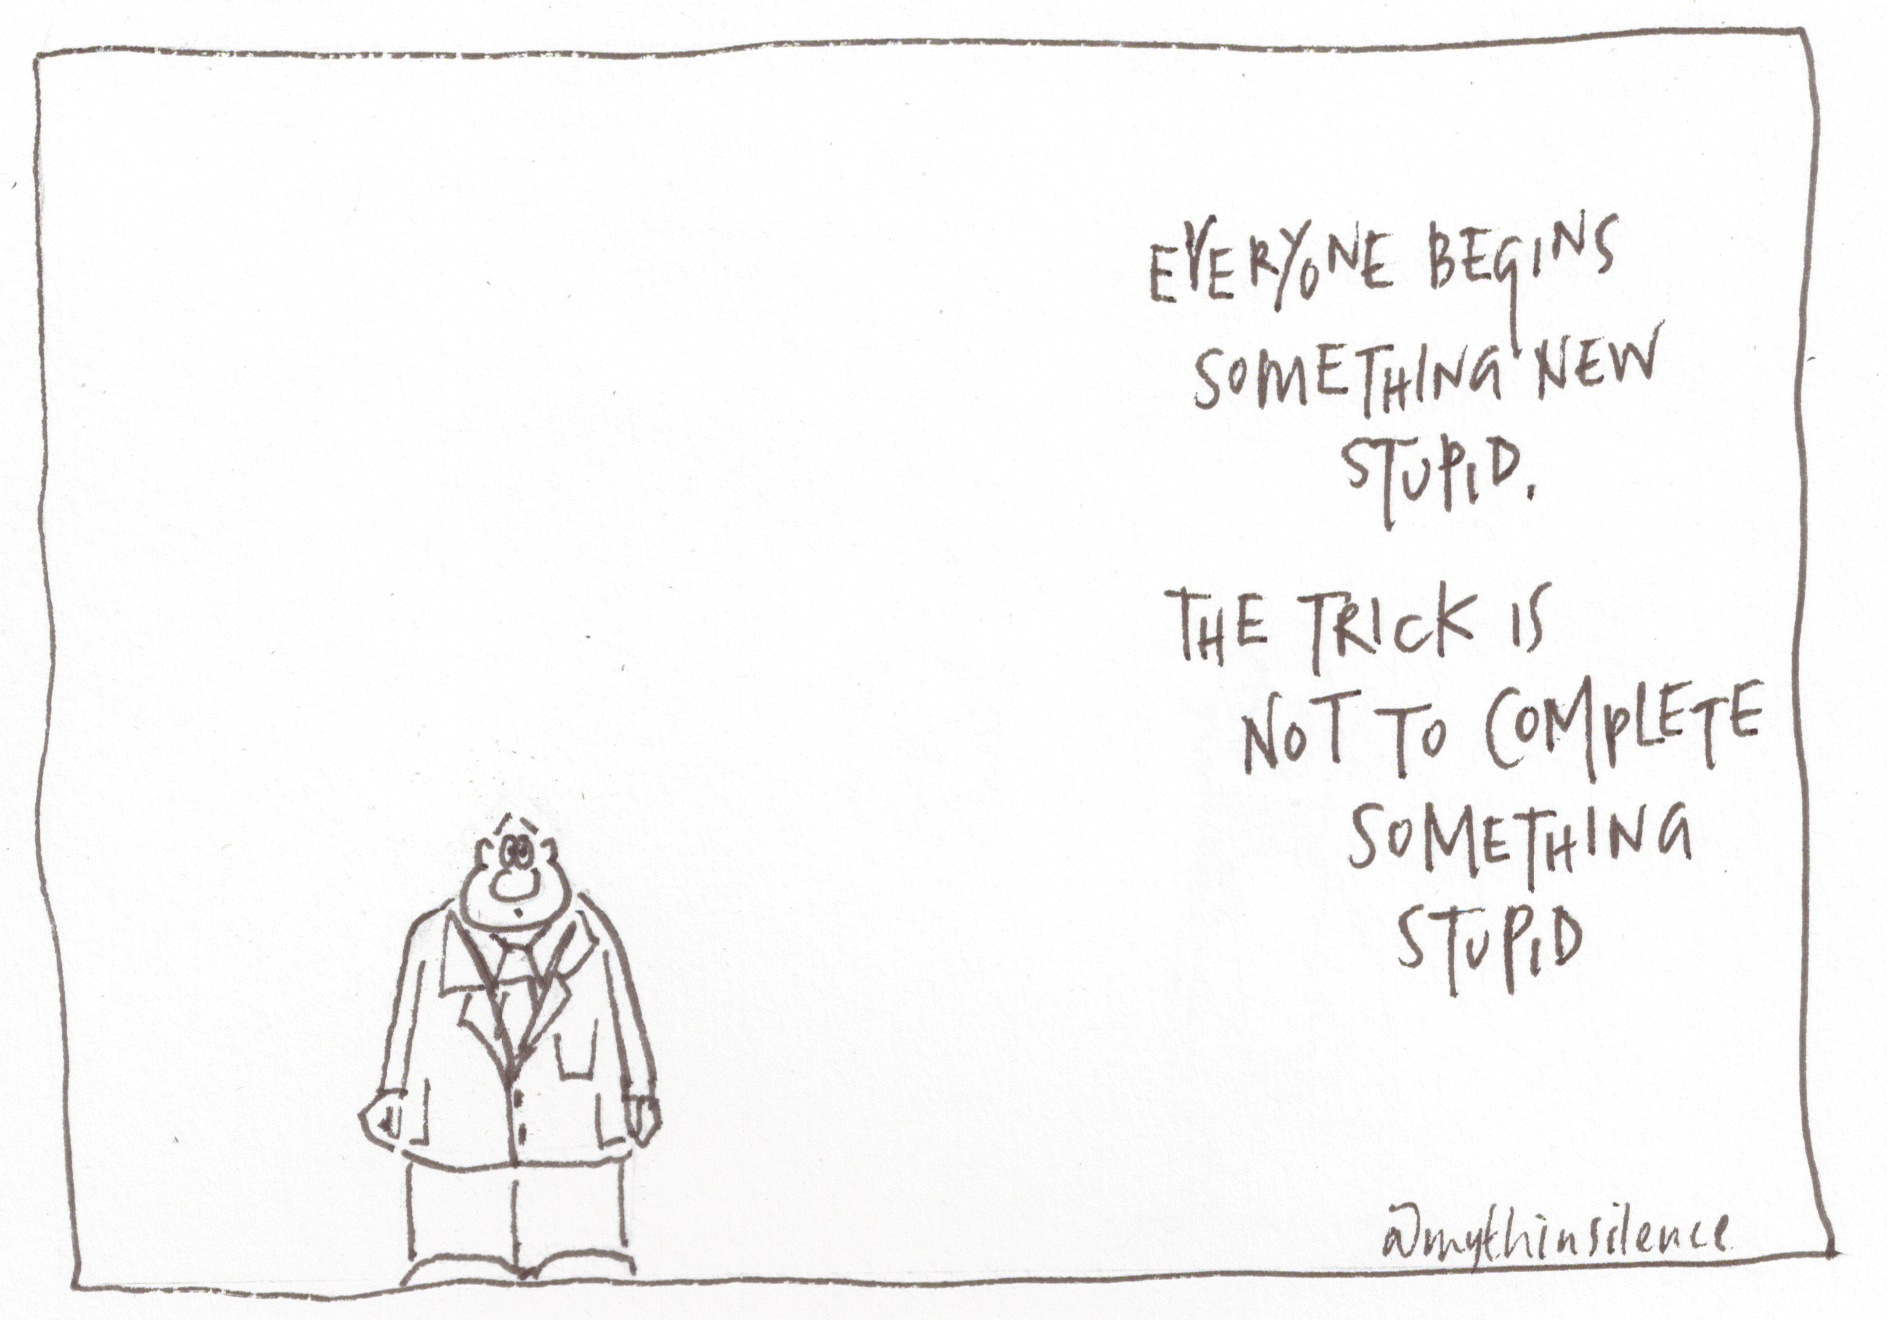 EVERYONE BEGINS
SOMETHING NEW
STUPID.
THE TRICK IS
NOT TO COMPLETE
SOMETHING
STUPID
@mythinsilence